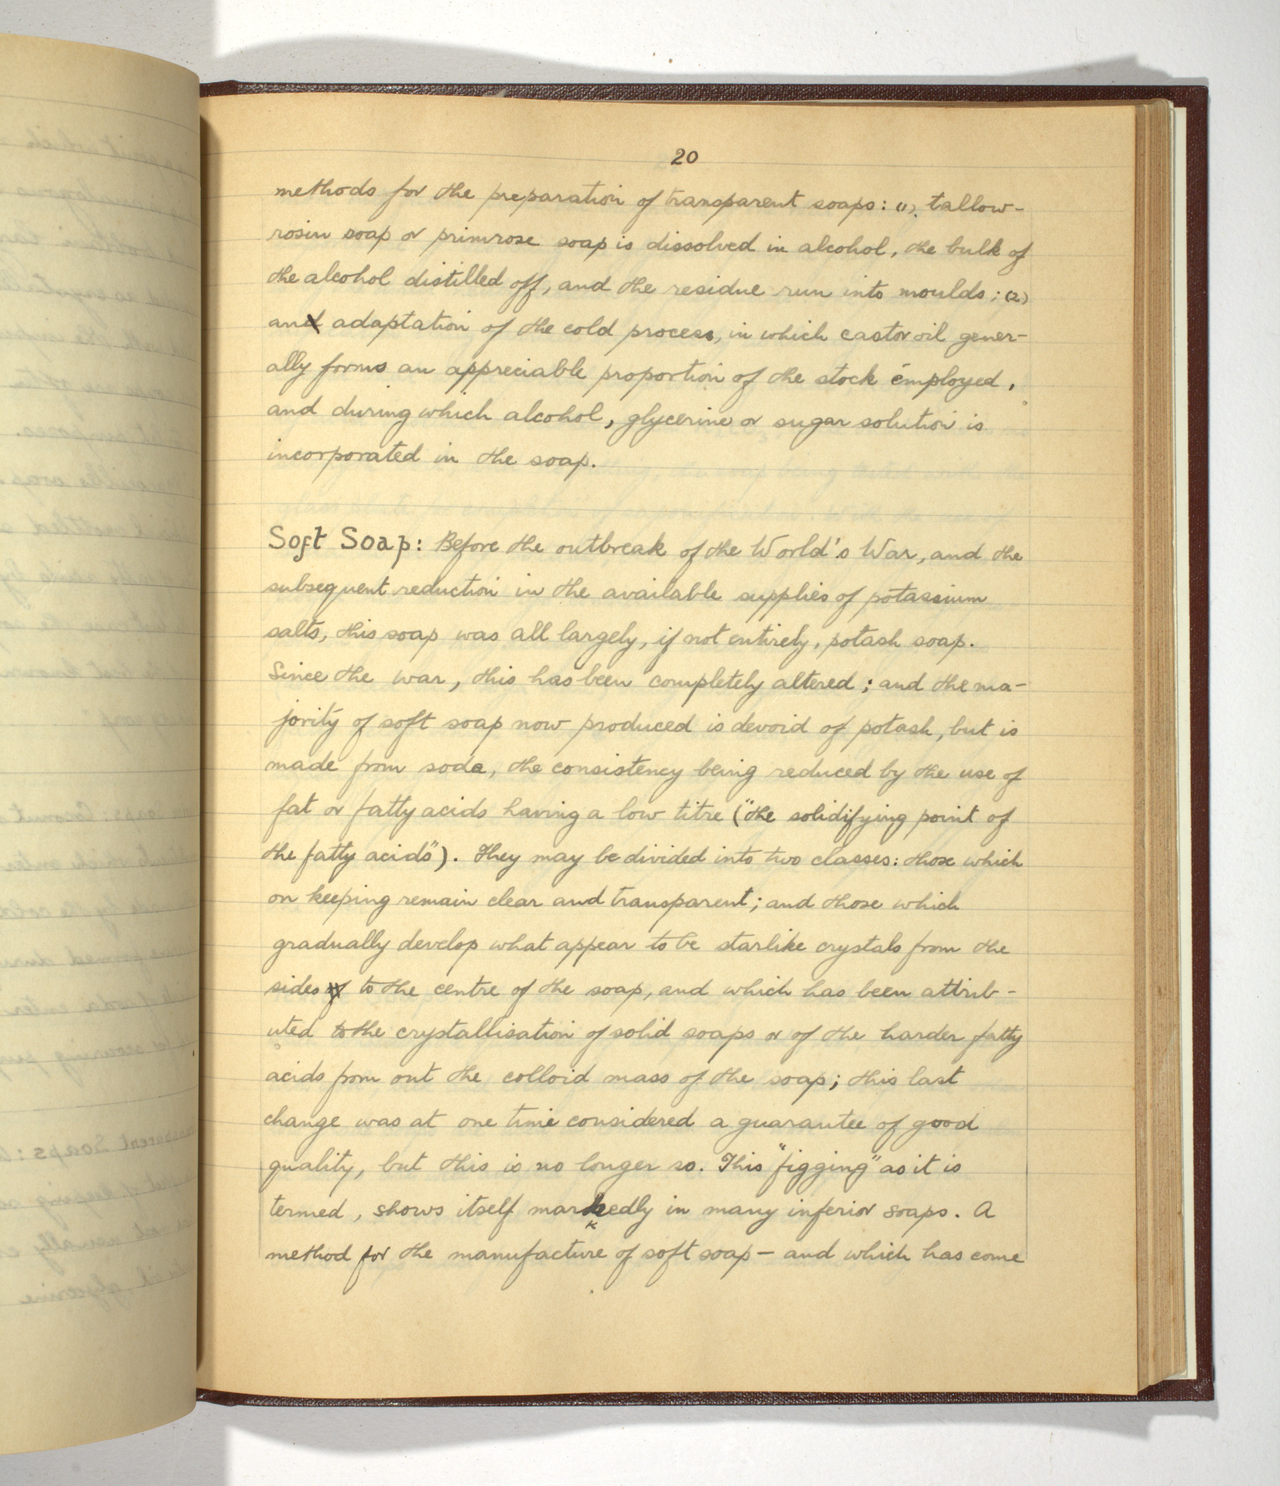 20
methods for the preparation of transparent soaps: (1). tallow-
rosin soap or primrose soap is dissolved in alcohol, the bulk of
the alcohol distilled off, and the residue run into moulds; (2)
an adaptation of the cold process, in which castor oil gener-
ally forms an appreciable proportion of the stock employed,
and during which alcohol, glycerine or sugar solution is
incorporated in the soap.
Soft Soap: Before the outbreak of the World's War, and the
subsequent reduction in the available supplies of potassium
salts, this soap was all largely, if not entirely, potash soap.
Since the war, this has been completely altered; and the ma-
jority of soft soap now produced is devoid of potash, but is
made from soda, the consistency being reduced by the use of
fat or fatty acids having a low titre ("the solidifying point of
the fatty acids"). They may be divided into two classes: those which
on keeping remain clear and transparent; and those which
gradually develop what appear to be starlike crystals from the
sides to the centre of the soap, and which has been attrib-
uted to the crystallisation of solid soaps or of the harder fatty
acids from out the colloid mass of the soap; this last
change was at one time considered a guarantee of good
quality, but this is no longer so. This "figging" as it is
termed, shows itself markedly in many inferior soaps. A
method for the manufacture of soft soap — and which has come